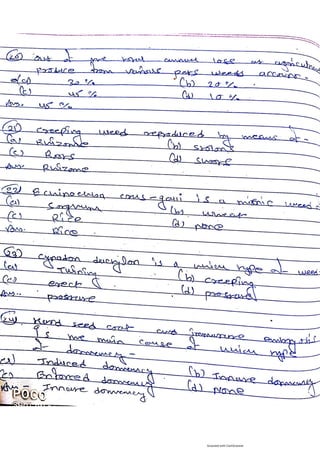 (20) Out of the total annual loss of agricultural
produce from various pests weeds account -
(a) 30% (b) 20%
(c) 45% (d) 10%
Ans. 45%
(21) Creeping weed reproduced by means of -
(a) Rhizome (b) Stolons
(c) Roots (d)
Ans. Rhizome
(22) Echinochloa crus-galli is a mimic weed -
(a) Sorghum (b) Wheat
(c) Rice (d) None
Ans. Rice
(23) Cynodon dactylon is a which type of weed
(a) Twining (b) Creeping
(c) erect (d)
Ans.
(24) Hard seed coat and immature embryo
is the main cause of which type
of dormancy -
(a) Induced dormancy (b) Innate dormancy
(c) Enforced dormancy (d) None
Ans - Innate dormancy
POCO